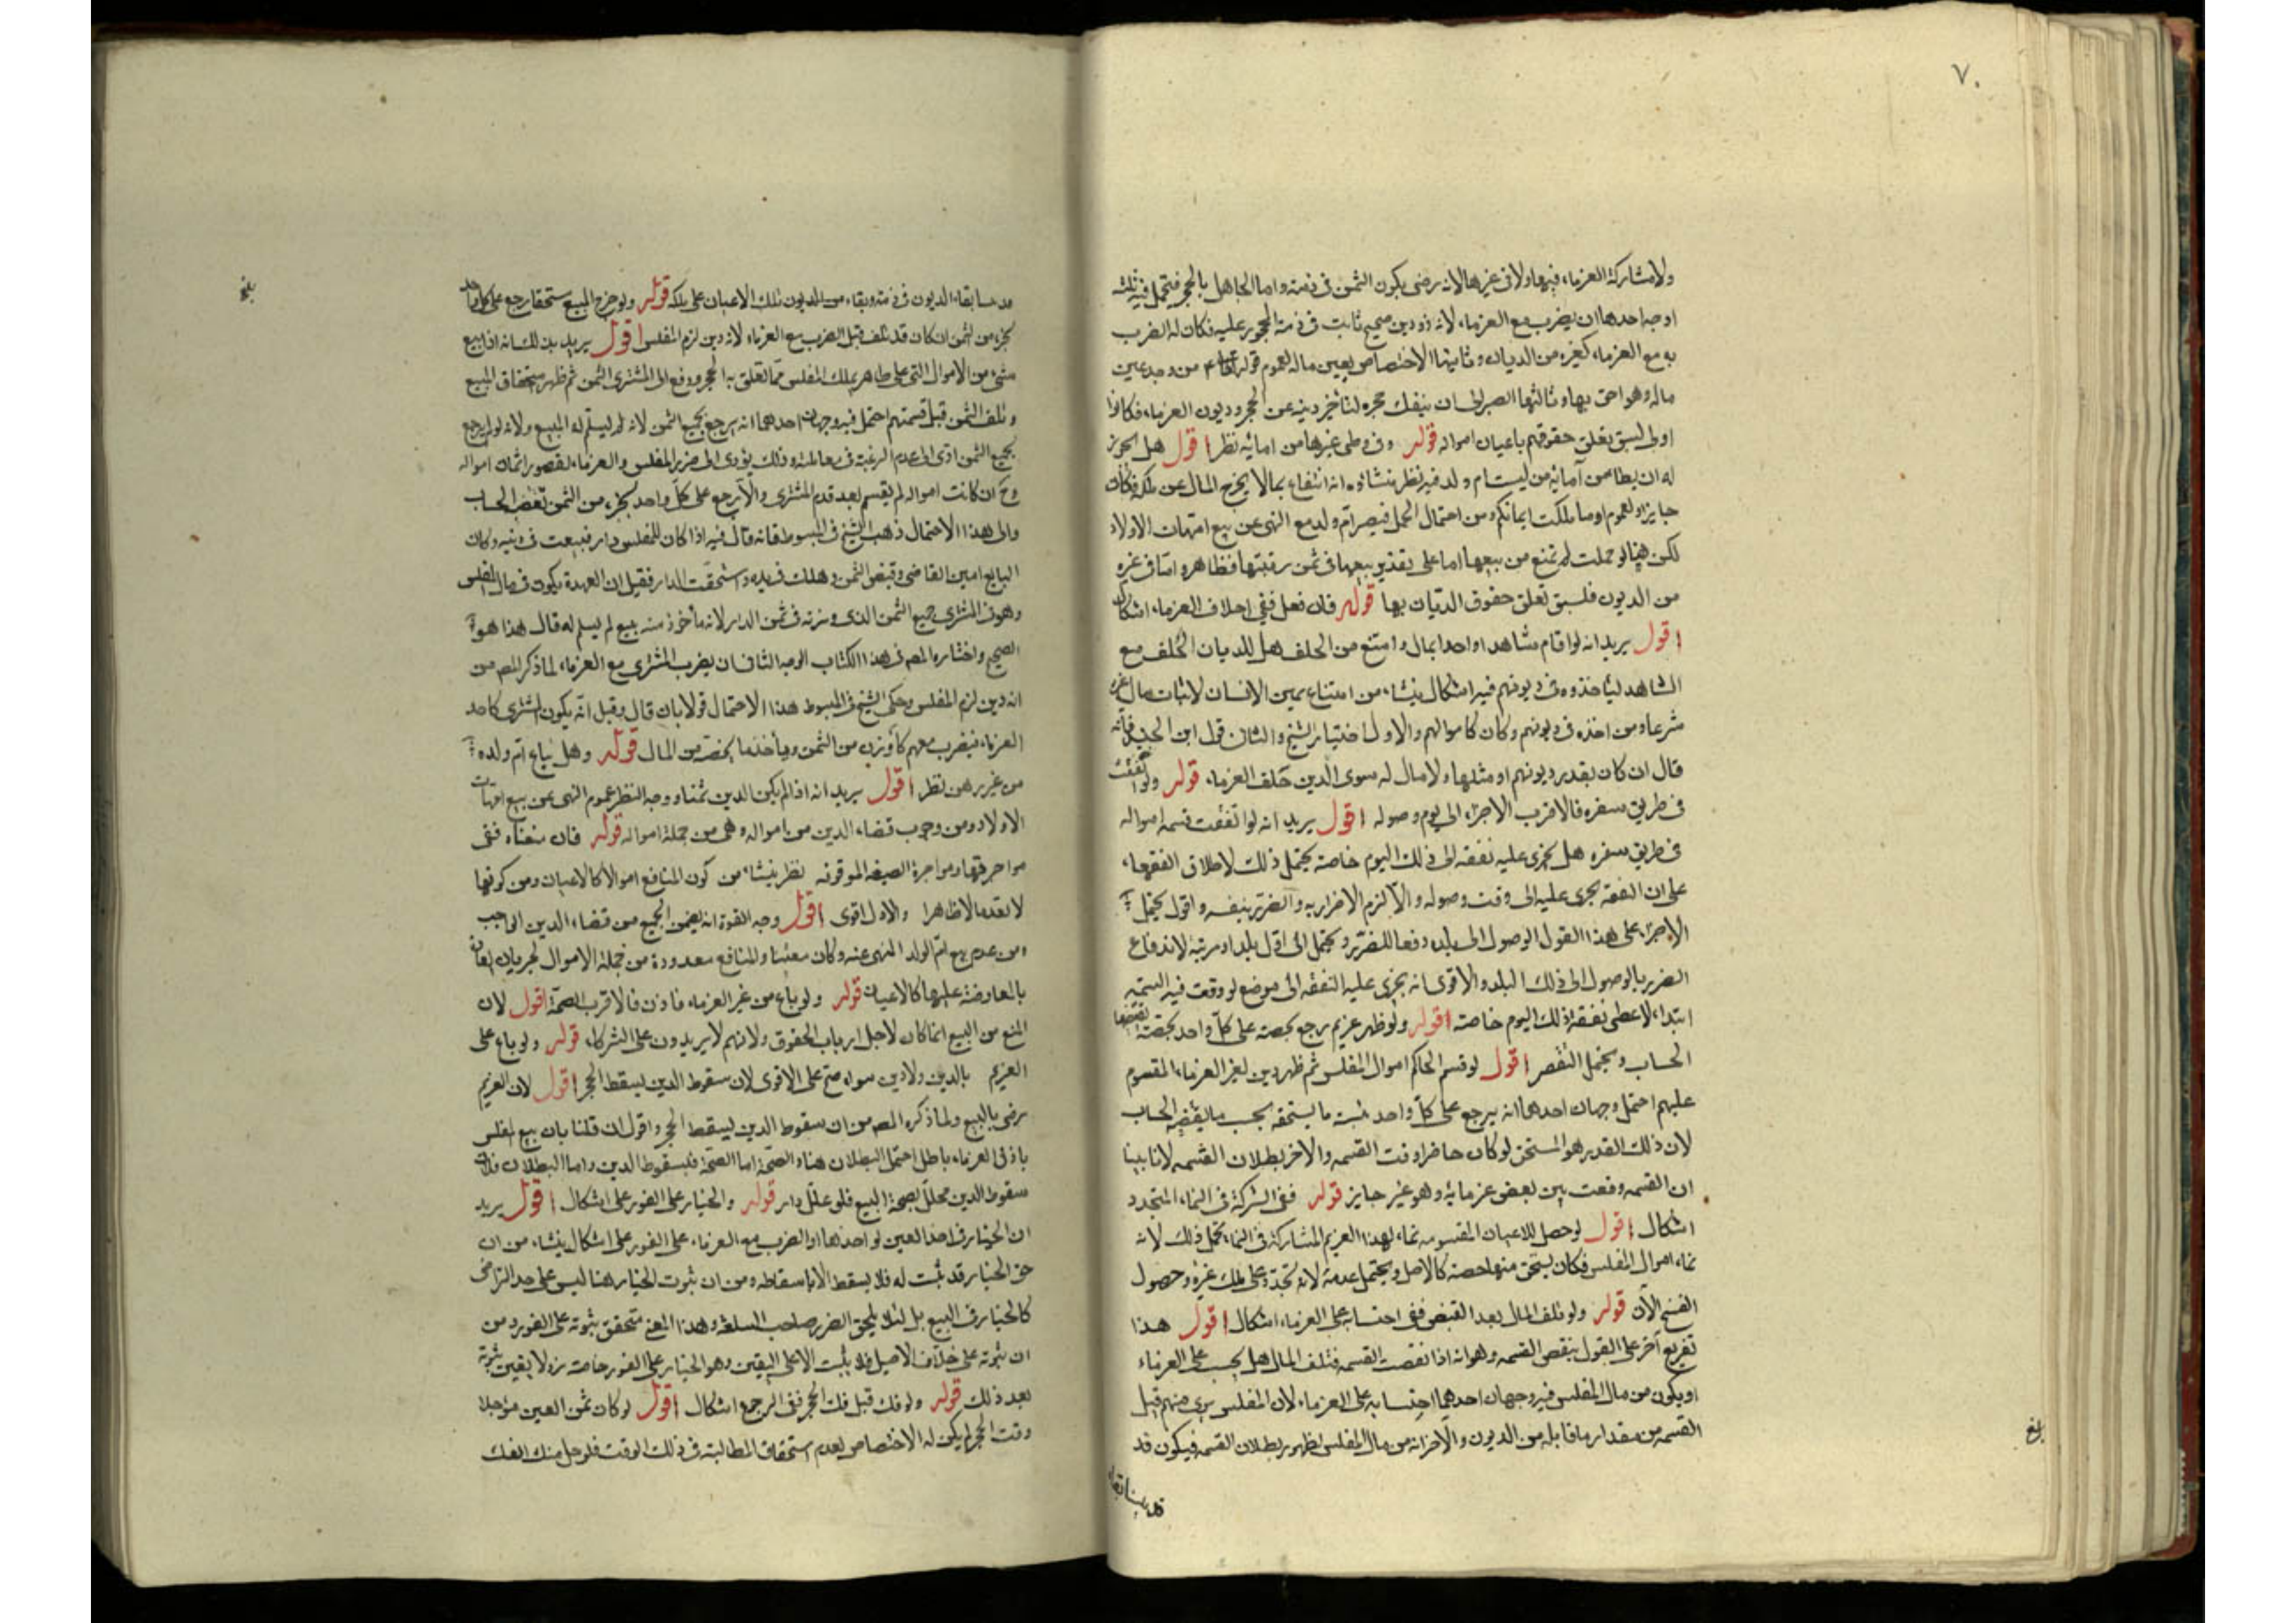 ٧٠
ولا مشاركة الغرماء فيها ولا في غيرها لانه رضي بكون الثمن في ذمته واما الجاهل بالحجر فيحتمل فيه ثلثة
اوجه احدها ان يضرب مع الغرماء لانه ذو دين صحيح ثابت في ذمة المحجور عليه فكان له الضرب
به مع الغرماء كغيره من الديان وثانيها الاختصاص بعين ماله لعموم قوله من وجد عين
ماله فهو احق بها وثالثها الصبر الى ان ينفك حجره لتأخر دينه عن الحجر وديون الغرماء فكانوا
اولى لسبق تعلق حقوقهم باعيان امواله قوله وفي وطى غيرها من امائه نظر اقول هل يجوز
له ان يطا من آمائه من ليست ام ولد فيه نظر منشاؤه انه انتفاع بما لا يخرج المال عن ملكه فكان
جايزا ولعموم او ما ملكت ايمانكم ومن احتمال الحمل فيصير ام ولد مع النهي عن بيع امهات الاولاد
لكن هنا لو حملت لم تمنع من بيعها اما على تقدير بيعها في ثمن رقبتها فظاهر واما في غيره
من الديون فلسبق تعلق حقوق الديان بها قوله فان نعل ففي احلاف الغرماء اشكال
اقول يريد انه لو اقام شاهدا واحدا بمال وامتنع من الحلف هل للديان الحلف مع
الشاهد لياخذوه في ديونهم فيه اشكال ينشاء من امتناع يمين الانسان لاثبات مال غيره
شرعا ومن اخذه في ديونهم وكان كاموالهم والاول اختيار الشيخ والثاني قول ابن الجنيد فانه
قال ان كان بقدر ديونهم او مثلها ولا مال له سوى الدين حلف الغرماء قوله ولو اتفقت
في طريق سفره فالاقرب الاجراء الى يوم وصوله اقول يريد انه لو اتفقت قسمة امواله
في طريق سفره هل يجرى عليه نفقه الى ذلك اليوم خاصة يحتمل ذلك لاطلاق الفقهاء
على ان النفقه يجرى عليه الى وقت وصوله والا لزم الاضرار به والضرر بنفسه واقول يحتمل
الاجراء على هذا القول الوصول الى بلده دفعا للضرر ويحتمل الى اول بلد او مرتبة لاندفاع
الضرر بالوصول الى ذلك البلد والاقوى انه يجرى عليه النفقه الى موضع لو وقعت فيه القسمة
ابتداء لاعطى نفقة ذلك اليوم خاصة قوله ولو ظهر غريم رجع بحصته على كل واحد بحصة يقتضيها
الحساب ويحتمل النقض اقول لو قسم الحاكم اموال المفلس ثم ظهر دين لغير الغرماء المقسوم
عليهم احتمل وجهان احدهما انه يرجع على كل واحد بنسبة ما يستحقه بحسب ما يقتضيه الحساب
لان ذلك القدر هو المستحق لو كان حاضرا وقت القسمه والاخر بطلان القسمه لانا بينا
ان القسمه وقعت بين بعض غرمائه وهو غير جايز قوله ففي الشركة في النماء المتجدد
اشكال اقول لو حصل للاعيان المقسومه نماء لهذا الغريم المشاركة في النماء يحتمل ذلك لانه
نماء اموال المفلس فكان يستحق منها حصة كالاصل ويحتمل عدمه لانه تجدد على ملك غيره وحصول
الفسخ الآن قوله ولو تلف المال بعد القبض ففي احتسابه على الغرماء اشكال اقول هذا
تفريع آخر على القول بنقض القسمه وهو انه اذا نقضت القسمه فتلف المال هل يحسب على الغرماء
او يكون من مال المفلس فيه وجهان احدهما احتسابه على الغرماء لان المفلس برئ منهم قبل
القسمه من مقدار ما قابله من الديون والآخر انه من مال المفلس لظهور بطلان القسمه فيكون قد
بلغ
بلغ
الديون في ذمته وبقاء من الديون تلك الاعيان على ملكه قوله ولو خرج المبيع مستحقا رجع على كل واحد
بجزء من الثمن ان كان قد تلف قبل الضرب مع الغرماء لانه دين لزم المفلس اقول يريد بذلك انه اذا بيع
شيء من الاموال التي على ظاهر ملك المفلس مما تعلق به الحجر ودفع المشتري الثمن ثم ظهر استحقاق المبيع
وتلف الثمن قبل قسمتهم احتمل فيه وجهان احدهما انه يرجع بجميع الثمن لانه لم يسلم له المبيع ولانه لو لم يرجع
بجميع الثمن ادى الى عدم الرغبة في معاملته وذلك يؤدى الى ضرر المفلس والغرماء لقصور اثمان امواله
وح ان كانت امواله لم يقسم بعد قدم المشترى والا رجع على كل واحد بجزء من الثمن يقتضيه الحساب
والى هذا الاحتمال ذهب الشيخ في المبسوط فانه قال فيه اذا كان للمفلس دار فبيعت في دينه وكان
البايع امين القاضي وقبض الثمن وهلك في يده واستحقت الدار فقيل ان العهدة يكون في مال المفلس
وهو في المشترى جميع الثمن الذي وزنه في ثمن الدار لانه مأخوذ منه ببيع لم يسلم له قال هذا هو
الصحيح واختاره المص في هذا الكتاب الوجه الثاني ان يضرب المشترى مع الغرماء لما ذكر المص من
انه دين لزم المفلس وحكى الشيخ في المبسوط هذا الاحتمال قولا بان قال وقيل انه يكون المشترى كاحد
الغرماء فيضرب معهم كما وزن من الثمن وياخذ ما يخصه من المال قوله وهل يباع ام ولده
من غير رهن نظر اقول يريد انه اذا لم يكن الدين ثمنها ووجه النظر عموم النهي عن بيع امهات
الاولاد ومن وجوب قضاء الدين من امواله وهي من جملة امواله قوله فان منعناه ففي
مواجرتها ومواجرة الضيعه الموقوفه نظر ينشاء من كون المنافع اموالا كالاعيان ومن كونها
لا يعد مالا ظاهرا والاول اقوى اقول وجه القوة انه يضمن الجمع من قضاء الدين الواجب
ومن عدم بيع ام الولد المنهى عنه وكان متعينا والمنافع معدودة من جملة الاموال لجريان
بالمعاوضة عليها كالاعيان قوله ولو باع من غير الغرماء فاذن فالاقرب الصحة اقول لان
المنع من البيع انما كان لاجل ارباب الحقوق ولانهم لا يزيدون على الشركاء قوله ولو باع على
الغريم بالدين ولا دين سواه صح على الاقوى لان سقوط الدين يسقط الحجر اقول لان الغريم
رضى بالبيع ولما ذكره المص من ان سقوط الدين يسقط الحجر واقول ان قلنا بان بيع المفلس
باذن الغرماء باطل احتمل البطلان هنا والصحة اما الصحة فلسقوط الدين واما البطلان فلان
سقوط الدين معلل بصحة البيع فلو علل دار قوله والخيار على الفور على اشكال اقول يريد
ان الخيار في اخذ العين لو اخذها او الضرب مع الغرماء على الفور على اشكال ينشاء من ان
حق الخيار قد ثبت له فلا يسقط الا باسقاطه ومن ان ثبوت الخيار هنا ليس على حد التراضي
كالخيار في البيع بل لئلا يلحق الضرر صاحب السلعة وهذا المعنى متحقق بثبوته على الفور ومن
ان ثبوته على خلاف الاصل فلا يثبت الا على اليقين وهو الخيار على الفور خاصة اذ لا يقين بثبوته
بعد ذلك قوله ولو فك قبل فك الحجر ففي الرجوع اشكال اقول لو كان ثمن العين مؤجلا
وقت الحجر لم يكن له الاختصاص لعدم استحقاق المطالبة في ذلك الوقت فلو حل منك الفك